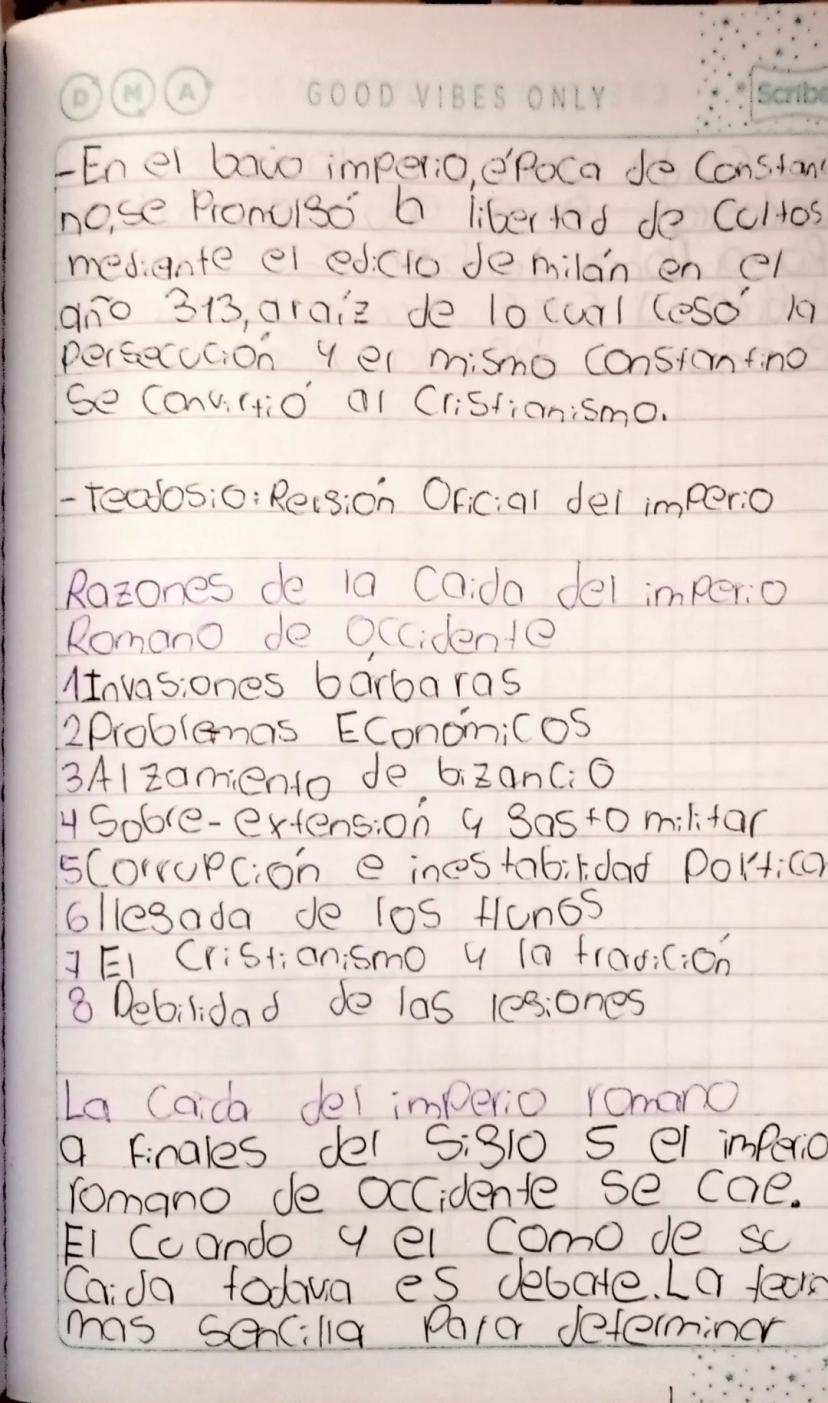 D M A GOOD VIBES ONLY Scribe
-En el bajo imperio, época de Constanti
no, se Promulgó la libertad de Cultos
mediante el edicto de milán en el
año 313, araíz de lo cual Cesó la
Persecución y el mismo Constantino
Se Convirtió al Cristianismo.
-Teodosio: Religión Oficial del imperio
Razones de la Caida del imperio
Romano de Occidente
1 Invasiones bárbaras
2 Problemas Económicos
3 Alzamiento de bizancio
4 Sobre-extensión y Gasto militar
5 Corrupción e inestabilidad Política
6 llegada de los Hunos
7 El Cristianismo y la tradición
8 Debilidad de las legiones
La Caida del imperio romano
a finales del Siglo 5 el imperio
romano de occidente se cae.
El Cuando y el Como de su
Caida todavia es debate. La teoria
mas sencilla Para determinar